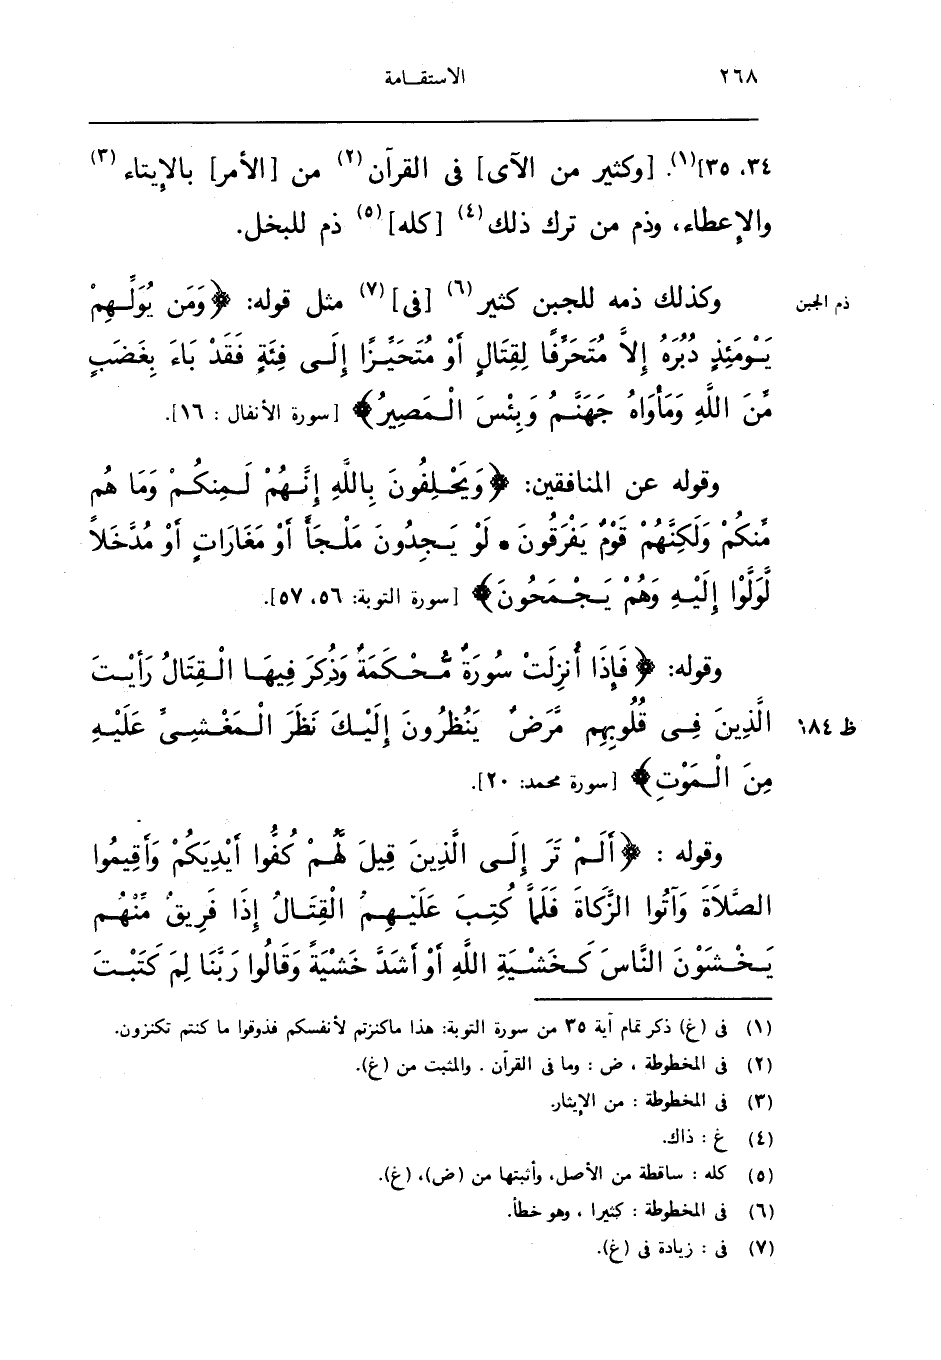 ٢٦٨
الاستقامة
٣٤، ٣٥](١). [وكثير من الآى] فى القرآن(٢) من [الأمر] بالإيتاء(٣)
والإعطاء، وذم من ترك ذلك(٤) [كله](٥) ذم للبخل.
ذم الجبن
وكذلك ذمه للجبن كثير(٦) [فى](٧) مثل قوله: ﴿وَمَن يُوَلِّهِمْ
يَوْمَئِذٍ دُبُرَهُ إِلاَّ مُتَحَرِّفًا لِقِتَالٍ أَوْ مُتَحَيِّزًا إِلَى فِئَةٍ فَقَدْ بَاءَ بِغَضَبٍ
مِّنَ اللَّهِ وَمَأْوَاهُ جَهَنَّمُ وَبِئْسَ الْمَصِيرُ﴾ [سورة الأنفال : ١٦].
وقوله عن المنافقين: ﴿وَيَحْلِفُونَ بِاللَّهِ إِنَّهُمْ لَمِنكُمْ وَمَا هُم
مِّنكُمْ وَلَكِنَّهُمْ قَوْمٌ يَفْرَقُونَ • لَوْ يَجِدُونَ مَلْجَأً أَوْ مَغَارَاتٍ أَوْ مُدَّخَلاً
لَّوَلَّوْا إِلَيْهِ وَهُمْ يَجْمَحُونَ﴾ [سورة التوبة: ٥٦، ٥٧].
وقوله: ﴿فَإِذَا أُنزِلَتْ سُورَةٌ مُّحْكَمَةٌ وَذُكِرَ فِيهَا الْقِتَالُ رَأَيْتَ
الَّذِينَ فِى قُلُوبِهِم مَّرَضٌ يَنظُرُونَ إِلَيْكَ نَظَرَ الْمَغْشِىِّ عَلَيْهِ
ظ ١٨٤
مِنَ الْمَوْتِ﴾ [سورة محمد: ٢٠].
وقوله : ﴿أَلَمْ تَرَ إِلَى الَّذِينَ قِيلَ لَهُمْ كُفُّوا أَيْدِيَكُمْ وَأَقِيمُوا
الصَّلاَةَ وَآتُوا الزَّكَاةَ فَلَمَّا كُتِبَ عَلَيْهِمُ الْقِتَالُ إِذَا فَرِيقٌ مِّنْهُم
يَخْشَوْنَ النَّاسَ كَخَشْيَةِ اللَّهِ أَوْ أَشَدَّ خَشْيَةً وَقَالُوا رَبَّنَا لِمَ كَتَبْتَ
(١) فى (غ) ذكر تمام آية ٣٥ من سورة التوبة: هذا ماكنزتم لأنفسكم فذوقوا ما كنتم تكنزون.
(٢) فى المخطوطة ، ض : وما فى القرآن . والمثبت من (غ).
(٣) فى المخطوطة : من الإيثار.
(٤) غ : ذاك.
(٥) كله : ساقطة من الأصل، وأثبتها من (ض)، (غ).
(٦) فى المخطوطة : كثيرا ، وهو خطأ.
(٧) فى : زيادة فى (غ).